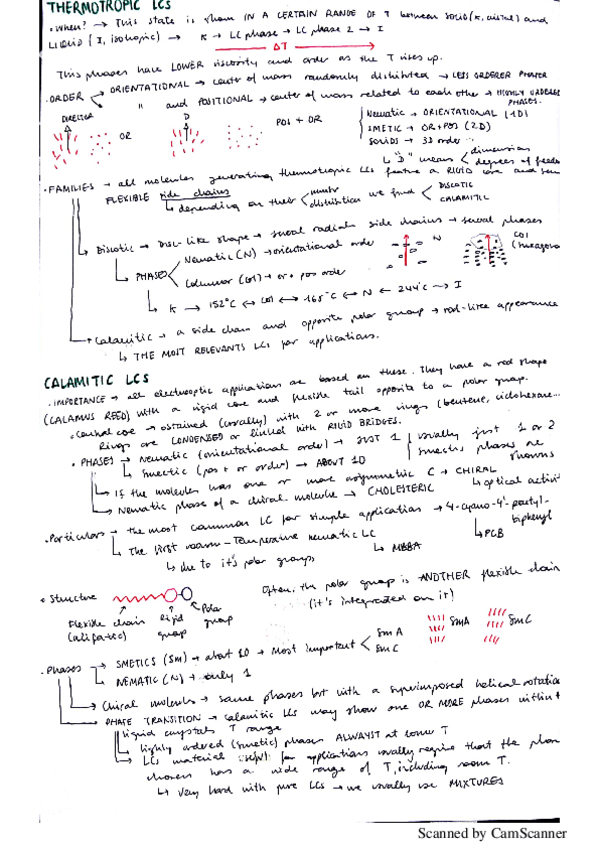 THERMOTROPIC LCs
• When? → This state is shown IN A CERTAIN RANGE OF T between SOLID (K, cristal) and
LIQUID (I, isotropic) → K → LC phase → LC phase 2 → I
ΔT
This phases have LOWER viscosity and order as the T rises up.
• ORDER ORIENTATIONAL → center of mass randomly distributed → LESS ORDERER PHASES
" and POSITIONAL → center of mass related to each other → HIGHLY ORDERED PHASES.
DIRECTOR OR D POS + OR
Nematic → ORIENTATIONAL (1D)
SMETIC → OR+POS (2D)
SOLIDS → 3D order
↳ "D" means dimension
degrees of
• FAMILIES → all molecules generating thermotropic LCs feature a RIGID core and
FLEXIBLE side chains
↳ depending on their number
distribution we find DISCOTIC
CALAMITIC
Discotic → Disc-like shape → several radial side chains → several phases
↳ PHASES Nematic (N) → orientational order
Columnar (Col) → or + pos order
N COL
↳ K → 152°C ↔ COL ↔ 165°C ↔ N ↔ 244°C → I
Calamitic → a side chain and opposite polar group → rod-like appearance
↳ THE MOST RELEVANTS LCs for applications.
CALAMITIC LCS
• IMPORTANCE → all electrooptic applications are based on these. They have a rod shape
(CALAMUS REED) with a rigid core and flexible tail opposite to a polar group.
• Central core → obtained (usually) with 2 or more rings (benzene, ciclohexane...
Rings are CONDENSED or linked with RIGID BRIDGES.
• PHASES → Nematic (orientational order) → JUST 1
Smectic (pos + or order) → ABOUT 10
Usually just 1 or 2 smectic phases are shown
↳ If the molecule has one or more asymmetric C → CHIRAL
↳ optical activit
↳ Nematic phase of a chiral molecule → CHOLESTERIC
• Particulars → the most common LC for simple applications → 4-cyano-4'-pentyl-
biphenyl
↳ The first room-temperature nematic LC
↳ MBBA ↳ PCB
↳ due to it's polar groups
• Structure
Flexible chain (alifatic) Rigid group Polar group
Often, the polar group is ANOTHER flexible chain
(it's integrated on it)
• Phases → SMETICS (Sm) → about 10 → Most important SmA
SmC
SmA SmC
↳ NEMATIC (N) → only 1
Chiral molecules → same phases but with a superimposed helical rotation
PHASE TRANSITION → Calamitic LCs may show one OR MORE phases within
liquid crystals T range
↳ highly ordered (smetic) phases ALWAYS at lower T
↳ LCs material useful for applications usually require that the phase
chosen has a wide range of T, including room T.
↳ Very hard with pure LCs → we usually use MIXTURES
Scanned by CamScanner